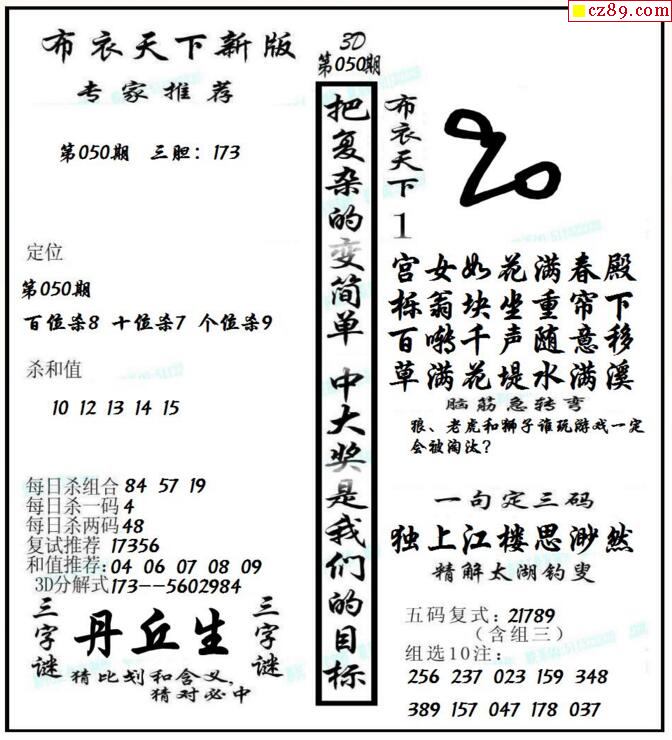 cz89.com
布衣天下新版
3D
第050期
专家推荐
第050期 三胆：173
定位
第050期
百位杀8 十位杀7 个位杀9
杀和值
10 12 13 14 15
每日杀组合84 57 19
每日杀一码4
每日杀两码48
复试推荐 17356
和值推荐:04 06 07 08 09
3D分解式173--5602984
三字谜
丹丘生
三字谜
猜比划和含义,
猜对必中
把复杂的变简单 中大奖是我们的目标
布衣天下1
宫女如花满春殿
栎翁块坐重帘下
百啭千声随意移
草满花堤水满溪
脑筋急转弯
狼、老虎和狮子谁玩游戏一定
会被淘汰?
一句定三码
独上江楼思渺然
精解太湖钓叟
五码复式：21789
（含组三）
组选10注：
256 237 023 159 348
389 157 047 178 037